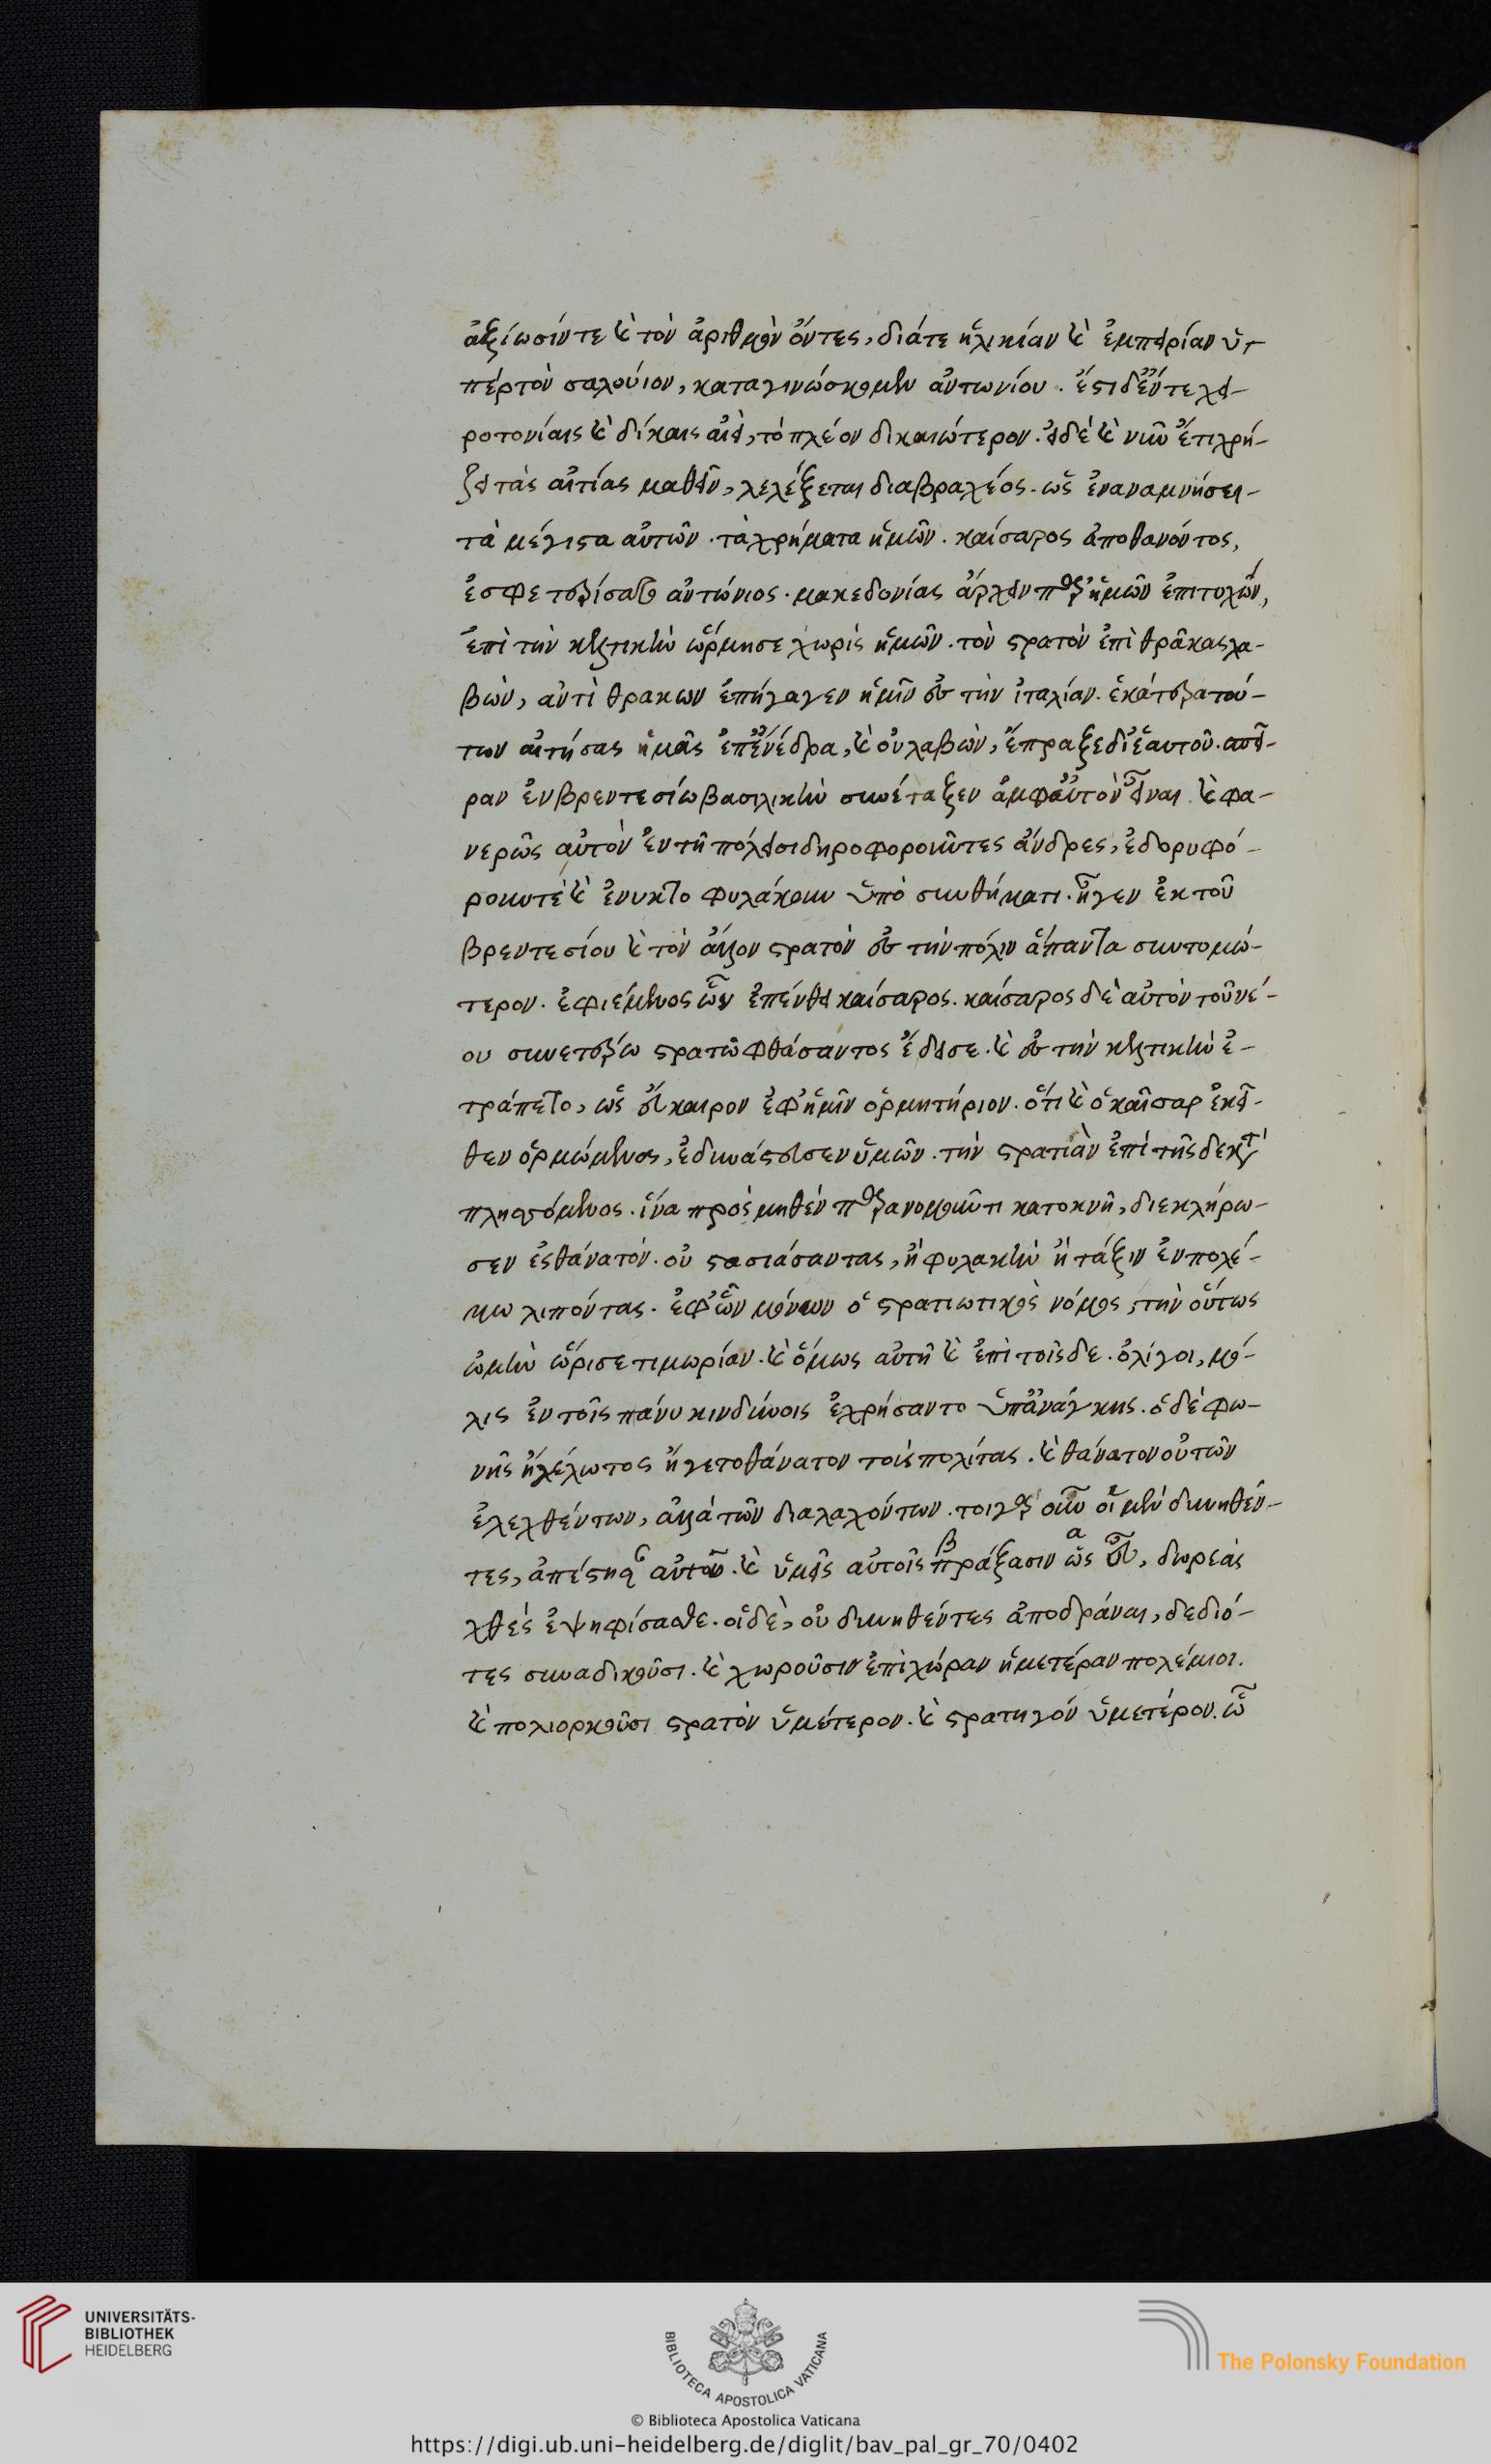 ἀξίωσίν τε καὶ τὸν ἀριθμὸν ὄντες, διά τε ἡλικίαν καὶ ἐμπειρίαν ὑ-
πὲρ τὸν σαλούιον, καταγινώσκομεν ἀντωνίου. ἔστι δ' ἔν τε χει-
ροτονίαις καὶ δίκαις αἰεὶ, τὸ πλέον δικαιώτερον. εἰ δὲ καὶ νῦν ἔτι χρή-
ζει τὰς αἰτίας μαθεῖν, λελέξεται διαβραχέος. ὡς ἐν αναμνήσει-
τὰ μέγιστα αὐτῶν. τὰ χρήματα ἡμῶν. καίσαρος ἀποθανόντος,
ἐσφετερίσατο ἀντώνιος. μακεδονίας ἄρχειν παρ' ἡμῶν ἐπιτυχὼν,
ἐπὶ τὴν κελτικὴν ὥρμησε χωρὶς ἡμῶν. τὸν στρατὸν ἐπὶ θρᾶκας λα-
βὼν, ἀντὶ θρακων ἐπήγαγεν ἡμῖν ἐς τὴν ἰταλίαν. ἑκάτερα τού-
των αἰτήσας ἡμᾶς ἐπ' ἐνέδρα, καὶ οὐ λαβὼν, ἔπραξε δι' ἑαυτοῦ. σπεῖ-
ραν ἐν βρεντεσίω βασιλικὴν συνέταξεν ἀμφ' αὑτὸν εἶναι. καὶ φα-
νερῶς αὐτὸν ἐν τῆ πόλει σιδηροφοροῦντες ἄνδρες, ἐδορυφό-
ρουν τὲ καὶ ἐνυκτο φυλάκουν ὑπὸ συνθήματι. ἦγεν ἐκ τοῦ
βρεντεσίου καὶ τὸν ἄλλον στρατὸν ἐς τὴν πόλιν ἅπαντα συντομώ-
τερον. ἐφιέμενος ὧν ἐπενόει καίσαρος. καίσαρος δὲ αὐτὸν τοῦ νέ-
ου συν ετέρω στρατῶ φθάσαντος ἔδεισε. καὶ ἐς τὴν κελτικὴν ἐ-
τράπετο, ὡς εὔκαιρον ἐφ' ἡμῖν ὁρμητήριον. ὅτι καὶ ὁ καῖσαρ ἐκεῖ-
θεν ὁρμώμενος, ἐδυνάστευσεν ὑμῶν. τὴν στρατιὰν ἐπὶ τῆσδε κατα
πλησσόμενος. ἵνα πρὸς μηθὲν παρανομοῦντι κατοκνῆ, διεκλήρω-
σεν ἐς θάνατον. οὐ στασιάσαντας, ἢ φυλακὴν ἢ τάξιν ἐν πολέ-
μω λιπόντας. ἐφ' ὧν μόνων ὁ στρατιωτικὸς νόμος, τὴν οὕτως
ὠμὴν ὥρισε τιμωρίαν. καὶ ὅμως αὐτῆ καὶ ἐπὶ τοῖσδε. ὀλίγοι, μό-
λις ἐν τοῖς πάνυ κινδύνοις ἐχρήσαντο ὑπ' ἀνάγκης. ὁ δὲ φω-
νῆς ἢ γέλωτος ἤγετο θάνατον τοὺς πολίτας. καὶ θάνατον οὐ τῶν
ἐλεχθέντων, ἀλλὰ τῶν διαλαχόντων. τοιγὰρ οὖν οἱ μὲν δυνηθέν-
τες, ἀπέστησαν αὐτοῦ. καὶ ὑμεῖς αὐτοῖς πράξασιν ὡς εὖ, δωρεὰς
χθὲς ἐψηφίσασθε. οἱ δὲ, οὐ δυνηθέντες ἀποδράναι, δεδιό-
τες συναδικοῦσι. καὶ χωροῦσιν ἐπὶ χώραν ἡμετέραν πολέμιοι.
καὶ πολιορκοῦσι στρατὸν ὑμέτερον. καὶ στρατηγὸν ὑμετέρον. ὧ
UNIVERSITÄTS-
BIBLIOTHEK
HEIDELBERG
BIBLIOTECA APOSTOLICA VATICANA
The Polonsky Foundation
© Biblioteca Apostolica Vaticana
https://digi.ub.uni-heidelberg.de/diglit/bav_pal_gr_70/0402